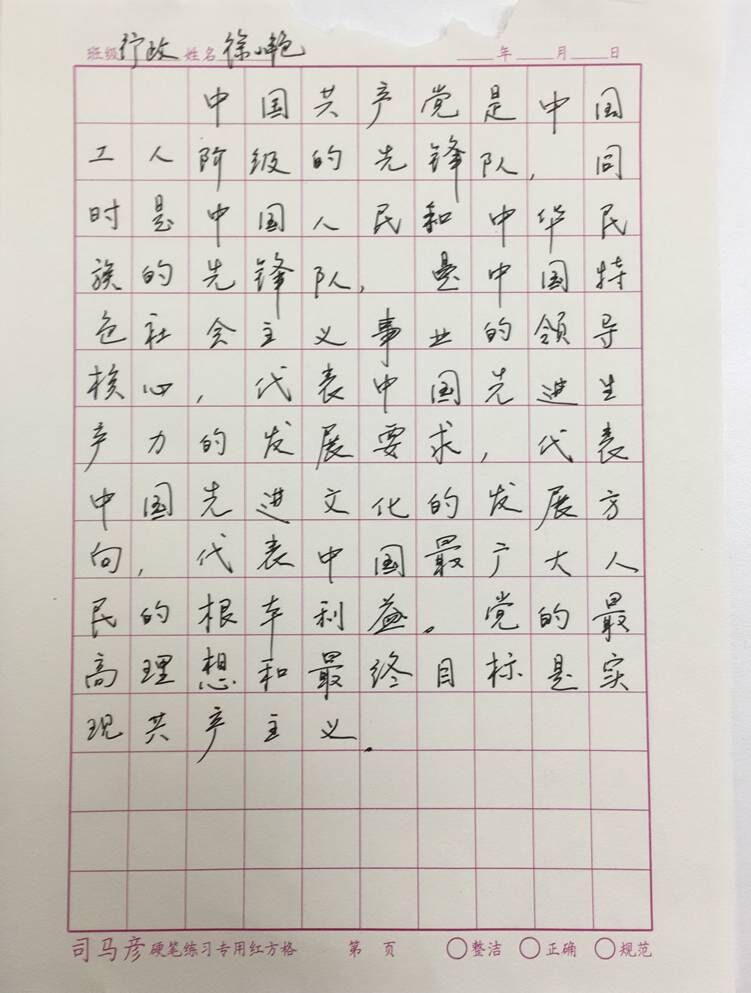 班级 行政 姓名 徐小艳 年 月 日
中国共产党是中国
工人阶级的先锋队，同
时是中国人民和中华民
族的先锋队，是中国特
色社会主义事业的领导
核心，代表中国先进生
产力的发展要求，代表
中国先进文化的发展方
向，代表中国最广大人
民的根本利益。党的最
高理想和最终目标是实
现共产主义。
司马彦 硬笔练习专用红方格 第 页 整洁 正确 规范